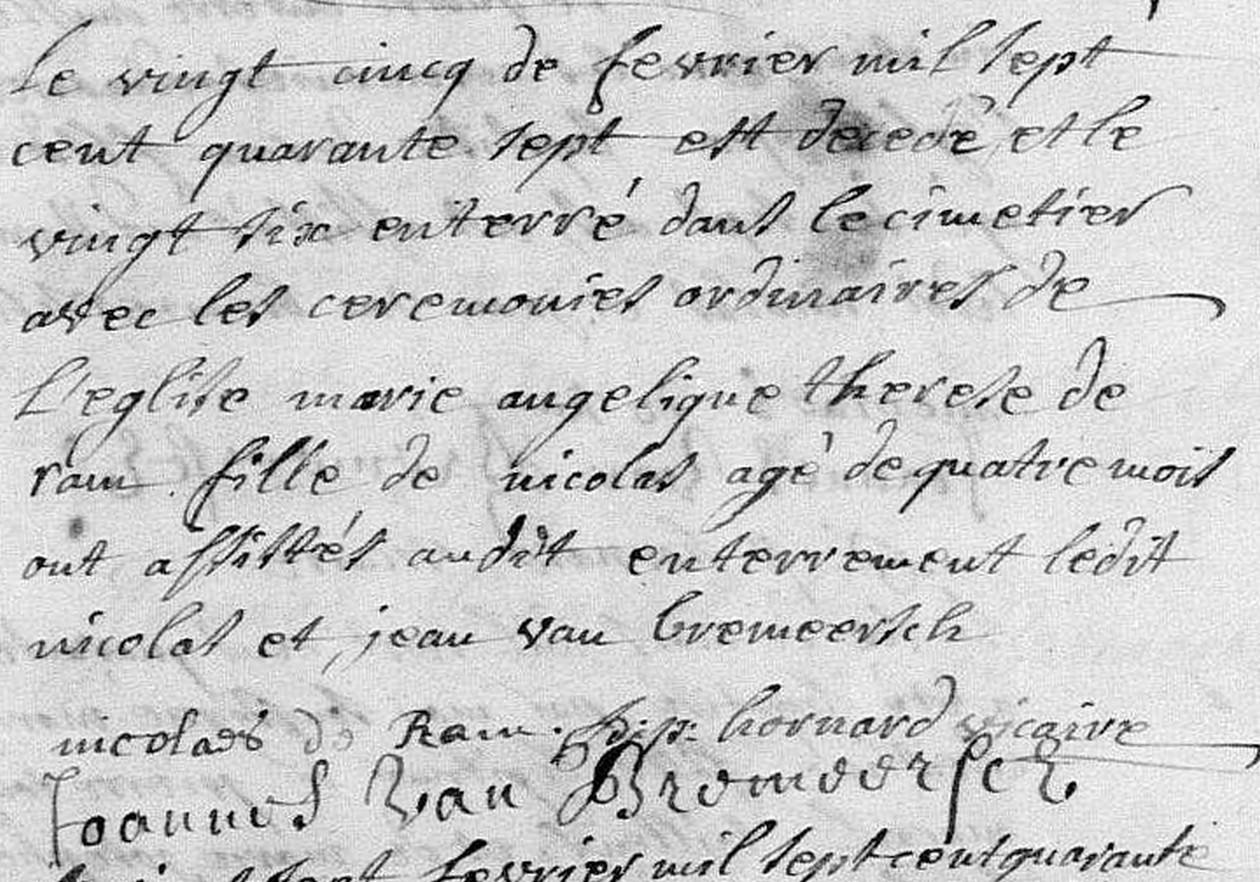 Le vingt cinq de fevrier mil sept
cent quarante sept est decedé et le
vingt six enterré dans le cimetier
avec les ceremonies ordinaires de
L'eglise marie angelique therese de
ram fille de nicolas agé de quatre mois
ont assistés audit enterrement ledit
nicolas et jean van bremeersch
nicolaes de Ram. hornard vicaire
Joannes Van Bremeersch
fevrier mil sept cent quarante